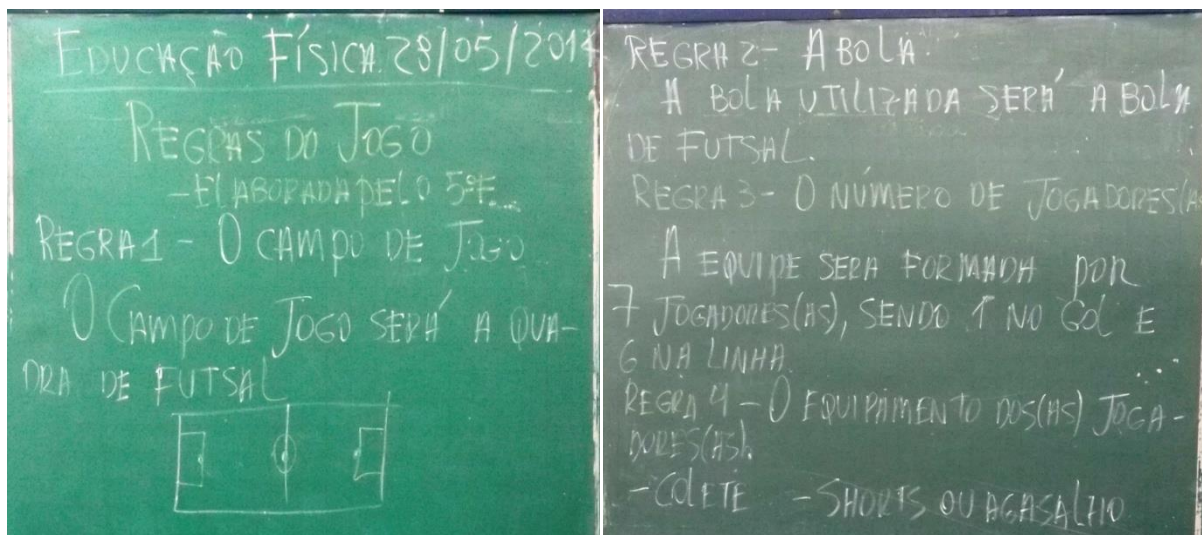 EDUCAÇÃO FÍSICA. 28/05/2014
REGRAS DO JOGO
- ELABORADA PELO 5ºF...
REGRA 1 - O CAMPO DE JOGO
O CAMPO DE JOGO SERÁ A QUA-
DRA DE FUTSAL
REGRA 2 - A BOLA.
A BOLA UTILIZADA SERÁ A BOLA
DE FUTSAL.
REGRA 3 - O NÚMERO DE JOGADORES(A
A EQUIPE SERA FORMADA POR
7 JOGADORES(AS), SENDO 1 NO GOL E
6 NA LINHA.
REGRA 4 - O EQUIPAMENTO DOS(AS) JOGA-
DORES(AS).
- COLETE - SHORTS OU AGASALHO